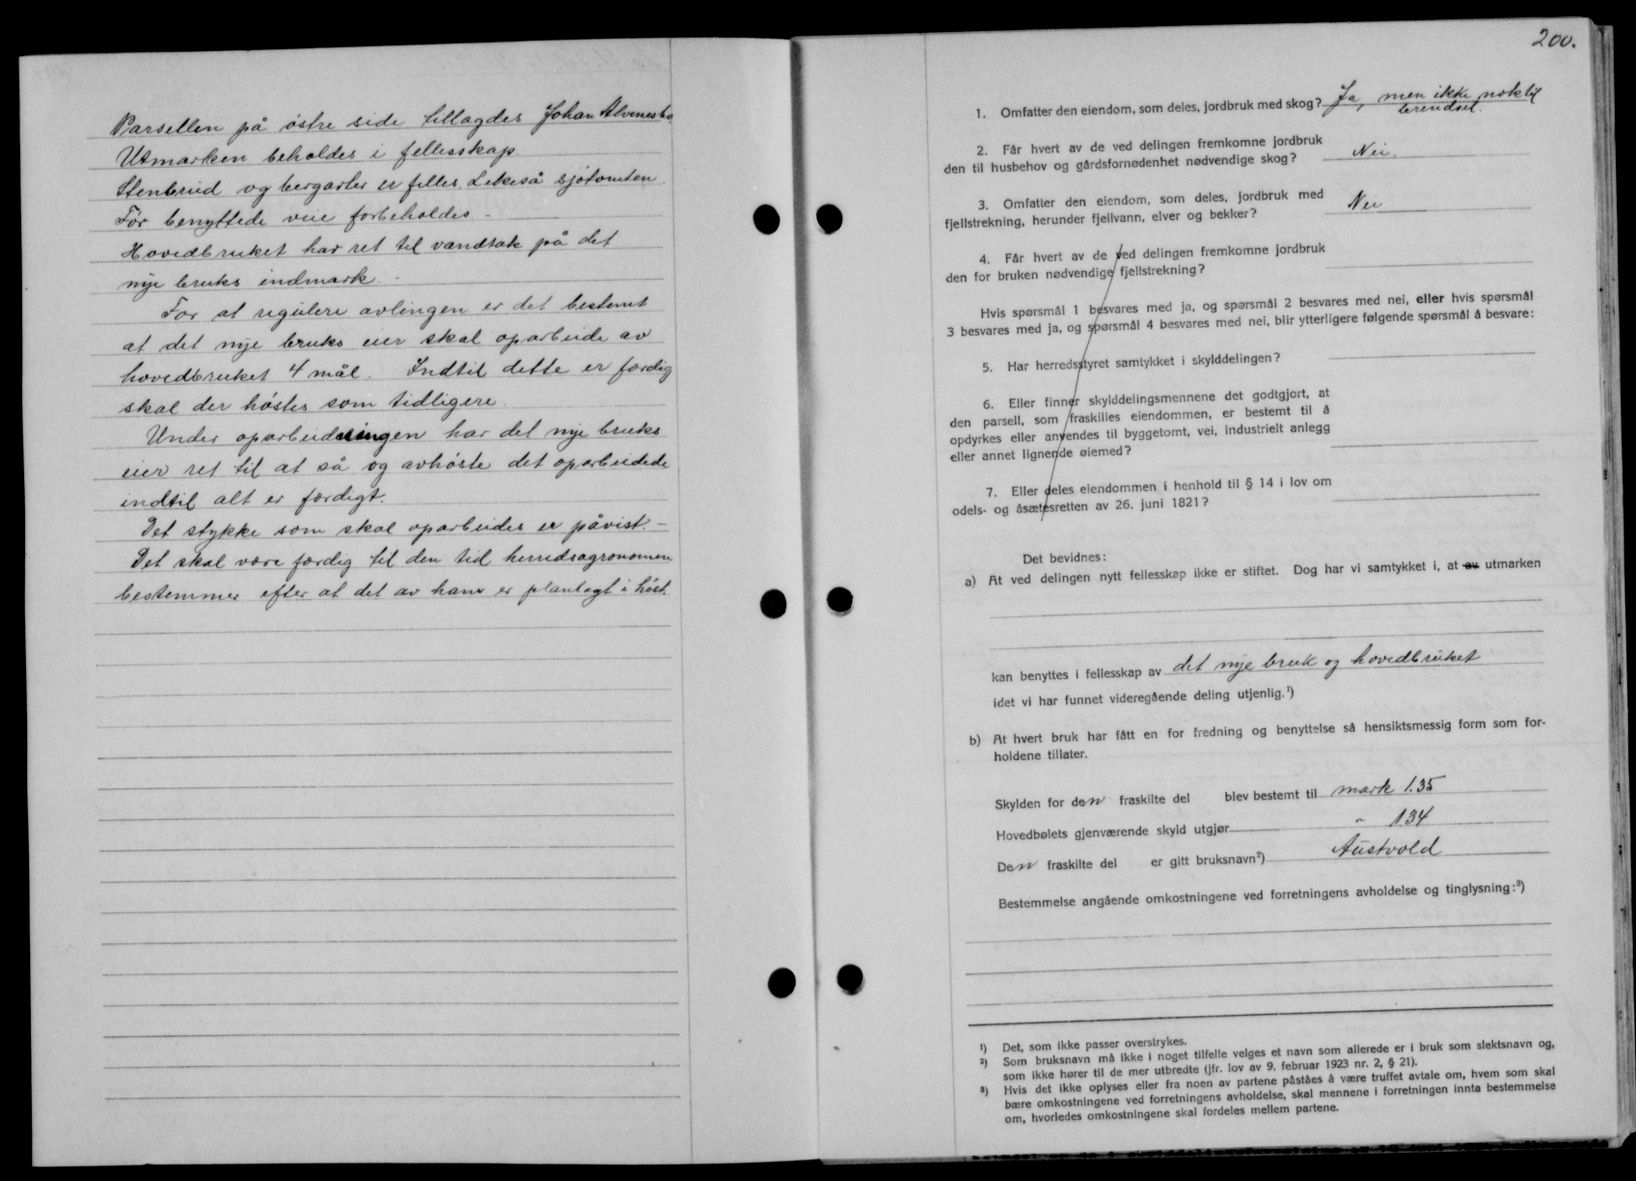 Parsellen på østre side tillagdes Johan Alvenes
Utmarken beholdes i fellesskap.
Stenbrud og bergarter er felles. Likeså sjøtomten.
Før benyttede veie forbeholdes. -
Hovedbruket har ret til vandtak på det
nye bruks indmark. -
For at regulere avlingen er det bestemt
at det nye bruks eier skal oparbeide av
hovedbruket 4 mål. Indtil dette er færdig
skal der høstes som tidligere.
Under oparbeidningen har det nye bruks
eier ret til at så og avhøste det oparbeidede
indtil alt er færdigt.
Det stykke som skal oparbeides er påvist. -
Det skal være færdig til den tid herredsagronomen
bestemmer efter at det av ham er planlagt i høst.
200.
1. Omfatter den eiendom, som deles, jordbruk med skog? Ja, men ikke nok til
brendsel.
2. Får hvert av de ved delingen fremkomne jordbruk
den til husbehov og gårdsfornødenhet nødvendige skog? Nei.
3. Omfatter den eiendom, som deles, jordbruk med
fjellstrekning, herunder fjellvann, elver og bekker? Nei
4. Får hvert av de ved delingen fremkomne jordbruk
den for bruken nødvendige fjellstrekning?
Hvis spørsmål 1 besvares med ja, og spørsmål 2 besvares med nei, eller hvis spørsmål
3 besvares med ja, og spørsmål 4 besvares med nei, blir ytterligere følgende spørsmål å besvare:
5. Har herredsstyret samtykket i skylddelingen?
6. Eller finner skylddelingsmennene det godtgjort, at
den parsell, som fraskilles eiendommen, er bestemt til å
opdyrkes eller anvendes til byggetomt, vei, industrielt anlegg
eller annet lignende øiemed?
7. Eller deles eiendommen i henhold til § 14 i lov om
odels- og åsætesretten av 26. juni 1821?
Det bevidnes:
a) At ved delingen nytt fellesskap ikke er stiftet. Dog har vi samtykket i, at av utmarken
kan benyttes i fellesskap av det nye bruk og hovedbruket
idet vi har funnet videregående deling utjenlig.¹)
b) At hvert bruk har fått en for fredning og benyttelse så hensiktsmessig form som for-
holdene tillater.
Skylden for den fraskilte del blev bestemt til mark 1.35
Hovedbølets gjenværende skyld utgjør " 1.34
Den fraskilte del er gitt bruksnavn²) Austvold
Bestemmelse angående omkostningene ved forretningens avholdelse og tinglysning:³)
¹) Det, som ikke passer overstrykes.
²) Som bruksnavn må ikke i noget tilfelle velges et navn som allerede er i bruk som slektsnavn og,
som ikke hører til de mer utbredte (jfr. lov av 9. februar 1923 nr. 2, § 21).
³) Hvis det ikke oplyses eller fra noen av partene påståes å være truffet avtale om, hvem som skal
bære omkostningene ved forretningens avholdelse, skal mennene i forretningen innta bestemmelse
om, hvorledes omkostningene skal fordeles mellem partene.